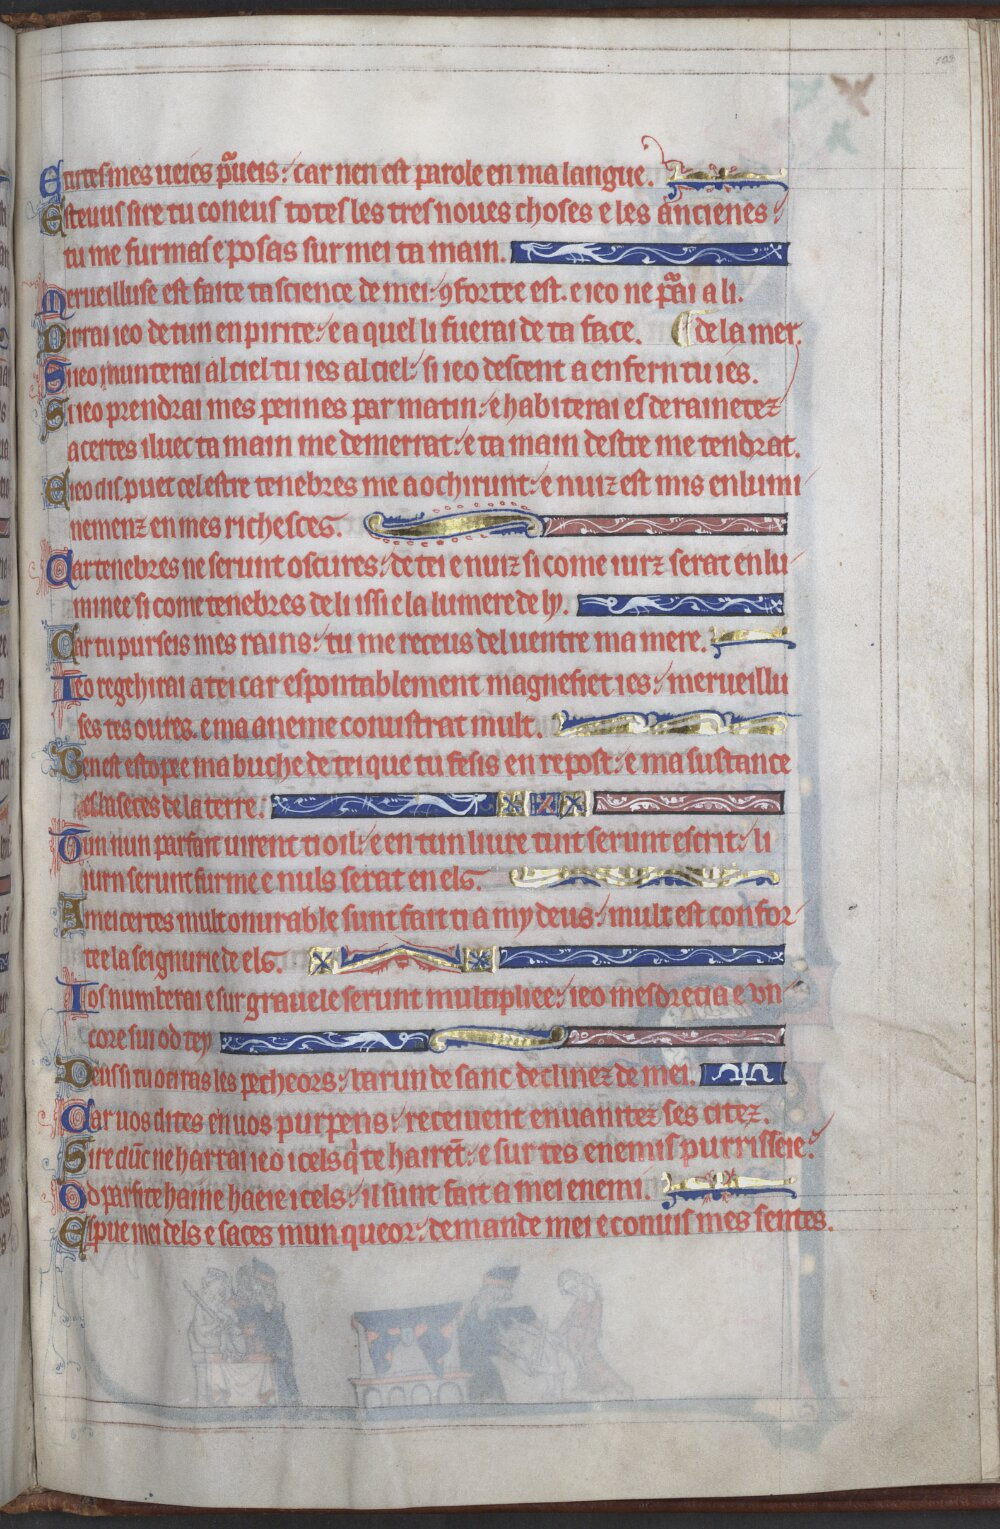 E tutes mes ueies p̃ueis : car nen est parole en ma langue.
E steuus sire tu coneus totes les tres noues choses e les ancienes :
tu me furmas e posas sur mei ta main.
Merueilluse est faite ta science de mei : ꝯfortee est. e ieo ne p̃rai a li.
V irrai ieo de tun enpirite : e a quel li fuerai de ta face. ¶ de la mer.
S i ieo munterai al ciel tu ies al ciel : si ieo descent a enfern tu ies.
S i ieo prendrai mes pennes par matin : e habiterai es derainetez
acertes iluec ta main me demerrat : e ta main destre me tendrat.
E ieo dis. puet celestre tenebres me aochirunt : e nuiz est mis enlumi
nemenz en mes richesces.
Car tenebres ne serunt oscures : de tei e nuiz si come iurz serat enlu
minee si come tenebres de li issi e la lumere de ly.
Car tu purseis mes rains : tu me receus del uentre ma mere.
Ieo regehirai a tei car espontablement magnefiet ies : merueillu
ses tes oures. e ma aneme conuistrat mult.
Nen est estopee ma buche de tei que tu fesis en repost : e ma sustance
es baseces de la terre.
Mun nun parfait uirent ti oil : e en tun liure tuit serunt escrit : li
iurn serunt furme e nuls serat en els.
A mei certes mult onurable sunt fait ti amy deus : mult est confor
tee la seignurie de els.
Ios numberai e sur grauele serunt multipliee : ieo mesdrecia e vn
core sui od tey
Deus si tu ociras les pecheors : barun de sanc declinez de mei.
Car uos dites en uos purpens : receiuent en uanitez ses citez.
Sire dũc ne harrai ieo icels q̃ te hairẽt : e sur tes enemis purrisseie :
O d parfite haine haeie icels : il sunt fait a mei enemi.
Espue mei dels e saces mun queor : demande mei e conuis mes sentes.